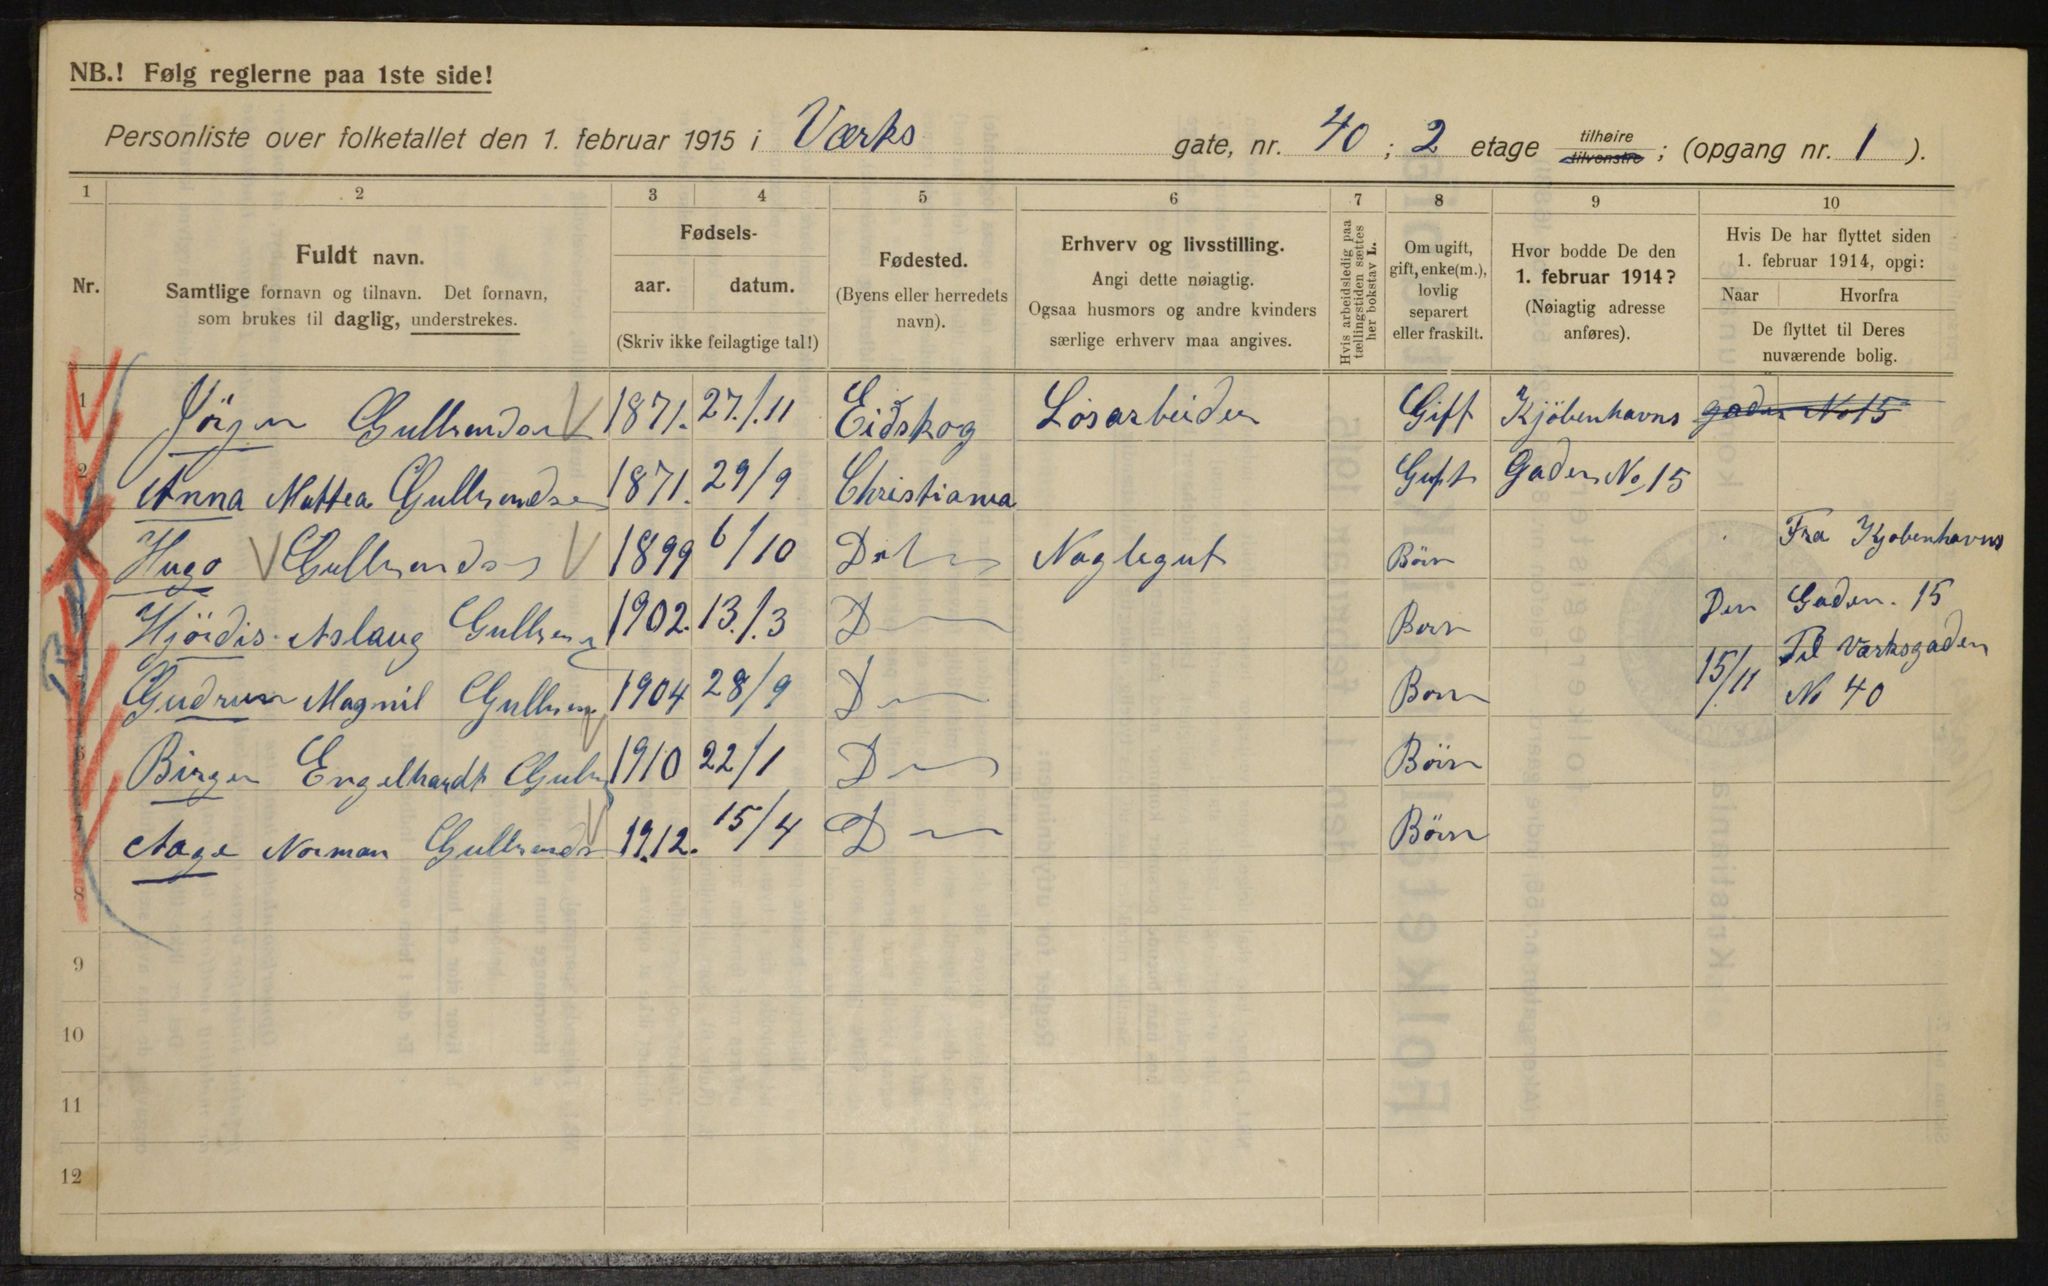 NB.! Følg reglerne paa 1ste side!
Personliste over folketallet den 1. februar 1915 i Værks gate, nr. 40; 2 etage tilhøire tilvenstre; (opgang nr. 1).
1 2 3 4 5 6 7 8 9 10
Nr.
Fuldt navn.
Samtlige fornavn og tilnavn. Det fornavn,
som brukes til daglig, understrekes.
Fødsels-
aar. datum.
(Skriv ikke feilagtige tal!)
Fødested.
(Byens eller herredets
navn).
Erhverv og livsstilling.
Angi dette nøiagtig.
Ogsaa husmors og andre kvinders
særlige erhverv maa angives.
Hvis arbeidsledig paa
tællingstiden sættes
her bokstav L.
Om ugift,
gift, enke(m.),
lovlig
separert
eller fraskilt.
Hvor bodde De den
1. februar 1914?
(Nøiagtig adresse
anføres).
Hvis De har flyttet siden
1. februar 1914, opgi:
Naar Hvorfra
De flyttet til Deres
nuværende bolig.
1 Jörgen Gulbrendsen 1871. 27./11 Eidskog Løsarbeider Gift Kjöbenhavns gaden No 15
2 Anna Mattea Gulbrendsen 1871. 29/9 Christiania Gift Gaden No 15
Hugo Gulbrendsen 1899 6/10 Do Naglegut Börn Fra Kjobenhavns
Hjördis Aslaug Gulbren 1902. 13./3 D Born Den Gaden. 15
Gudrun Magnil Gulbren 1904 28/9 D Born 15/11 Til Værksgaden
No 40
6 Birger Engelhardt Gulb 1910 22/1 D Börn
7 Aage Norman Gulbrends 1912. 15/4 D Börn
8
9
10
11
12